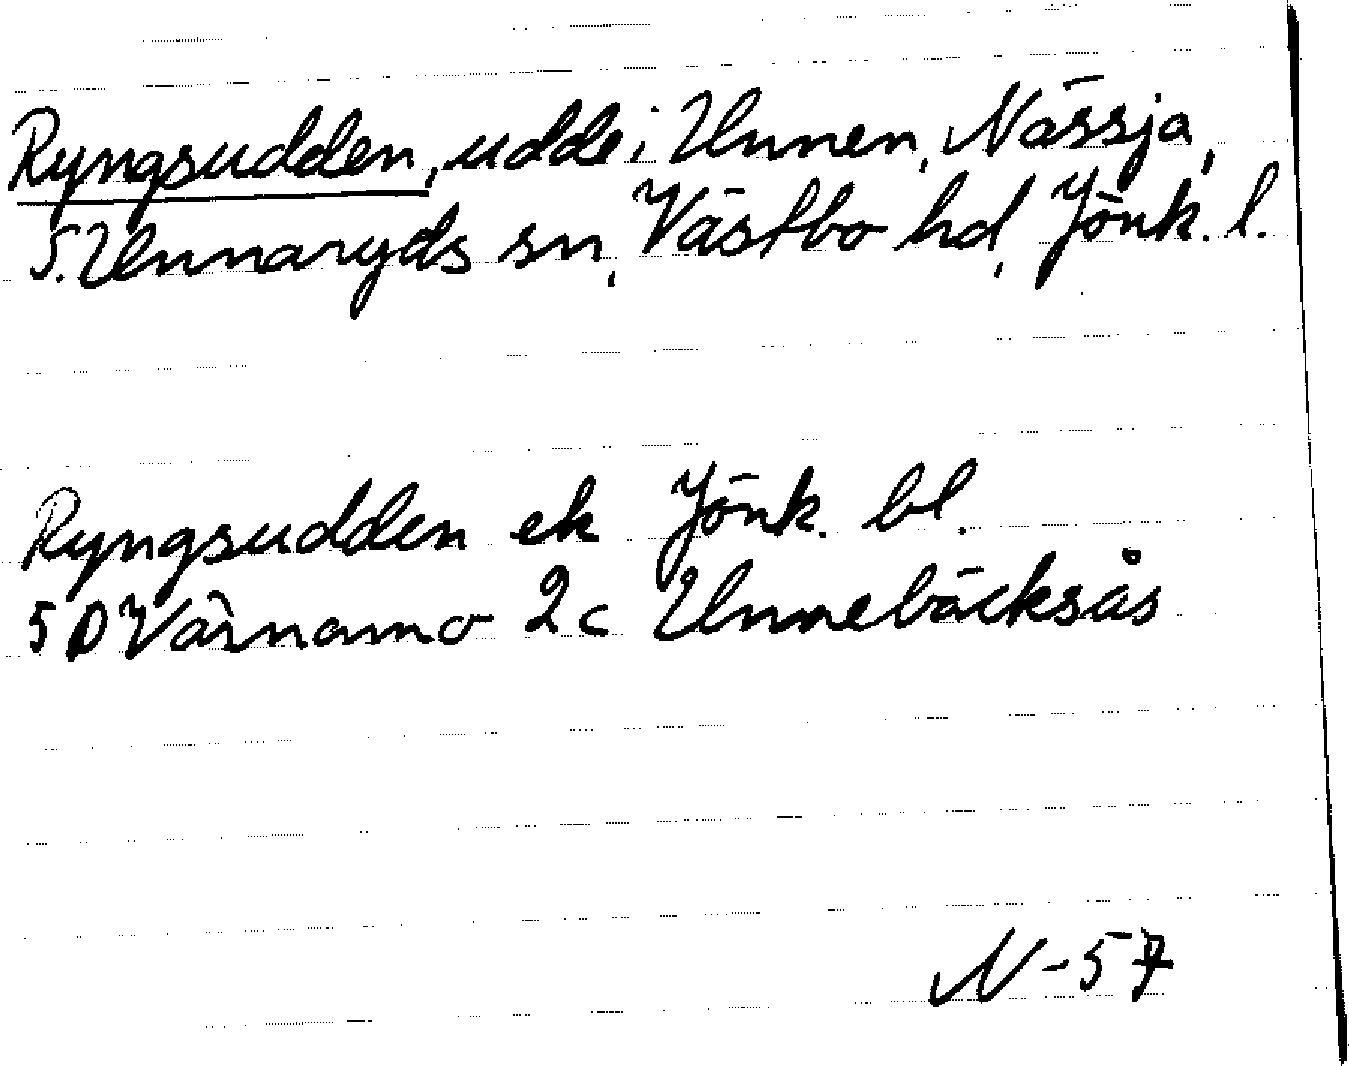 Ryngsudden, udde i Unnen, Nässja,
S. Unnaryds sn, Västbo hd, Jönk. l.
Ryngsudden ek Jönk. bl.
5 D Värnamo 2c Unnebäcksås
N-57